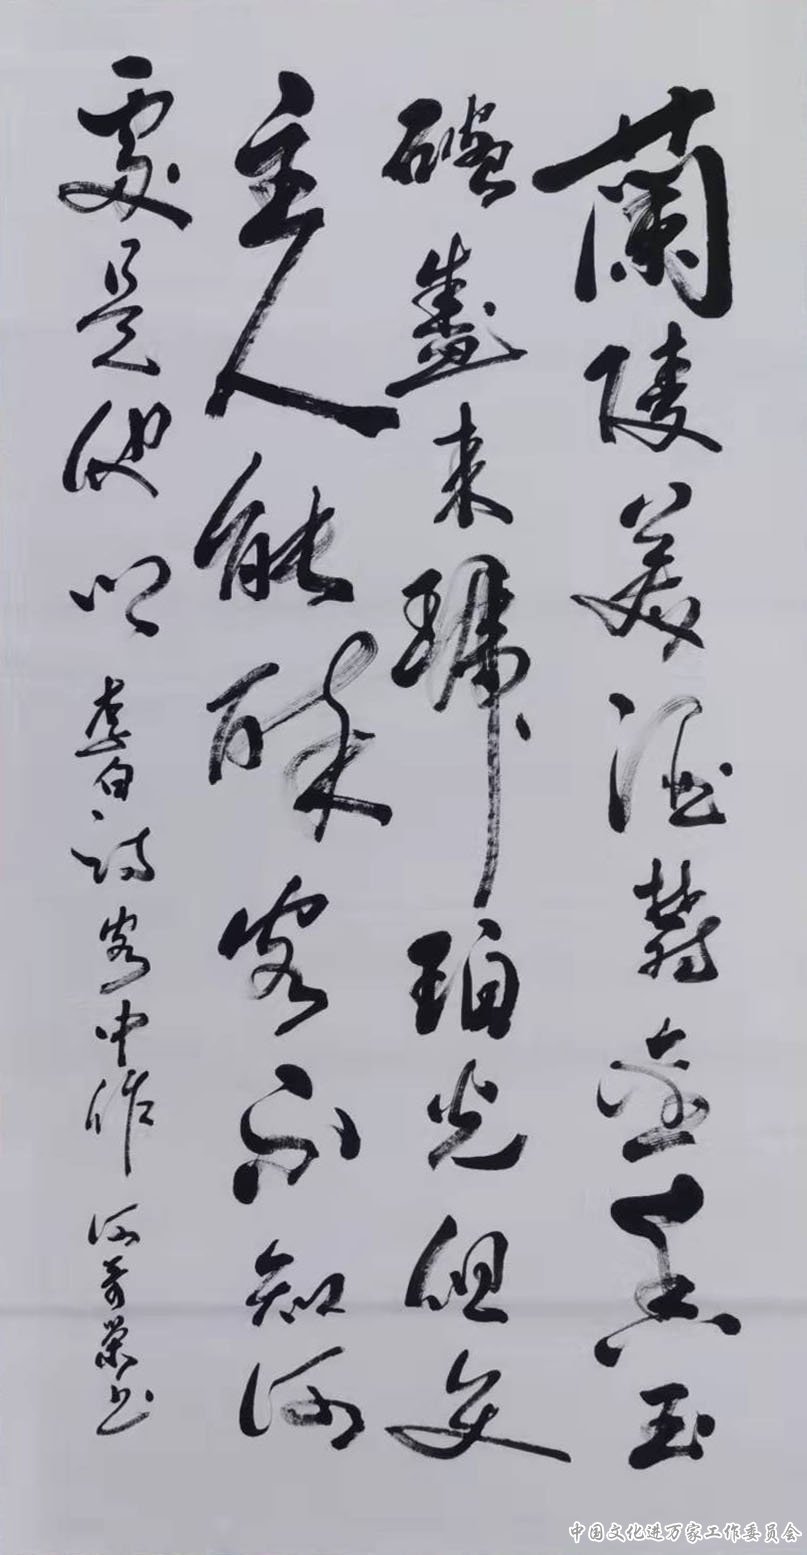 蘭陵美酒鬱金香玉
碗盛来琥珀光但使
主人能醉客不知何
處是他鄉 李白詩客中作 何荣书
中国文化进万家工作委员会